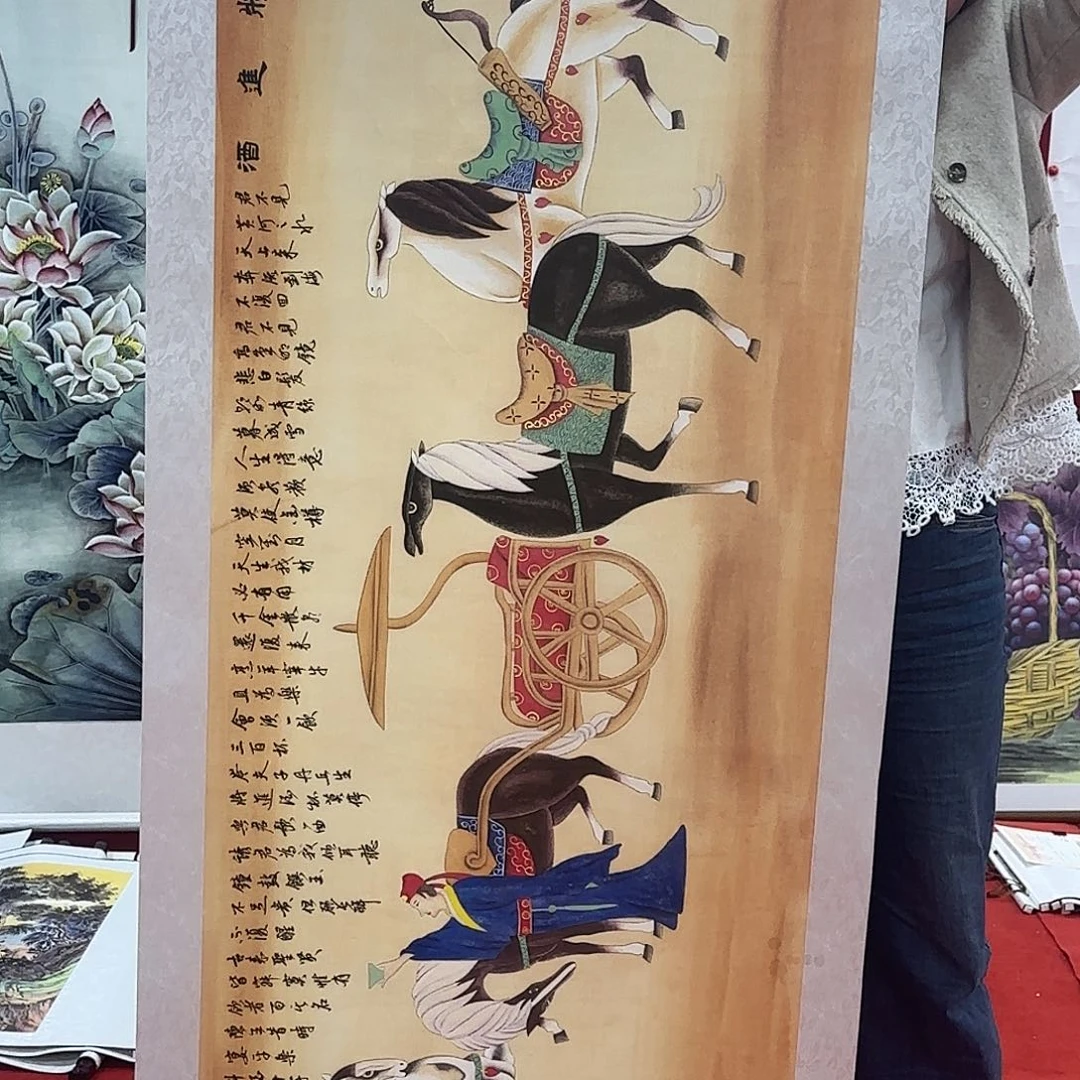 將進酒
君不見
黃河之水
天上來
奔流到海
不復回
君不見
高堂明鏡
悲白髮
朝如青絲
暮成雪
人生得意
須盡歡
莫使金樽
空對月
天生我材
必有用
千金散盡
還復來
烹羊宰牛
且為樂
會須一飲
三百杯
岑夫子丹丘生
將進酒杯莫停
與君歌一曲
請君為我傾耳聽
鐘鼓饌玉
不足貴但願長醉
不復醒
古來聖賢
皆寂寞惟有
飲者留其名
陳王昔時
宴平樂